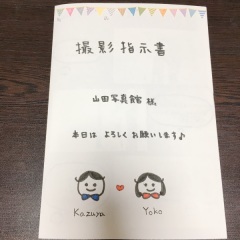 撮影指示書
山田写真館 様
本日は よろしくお願いします♪
Kazuya Yoko